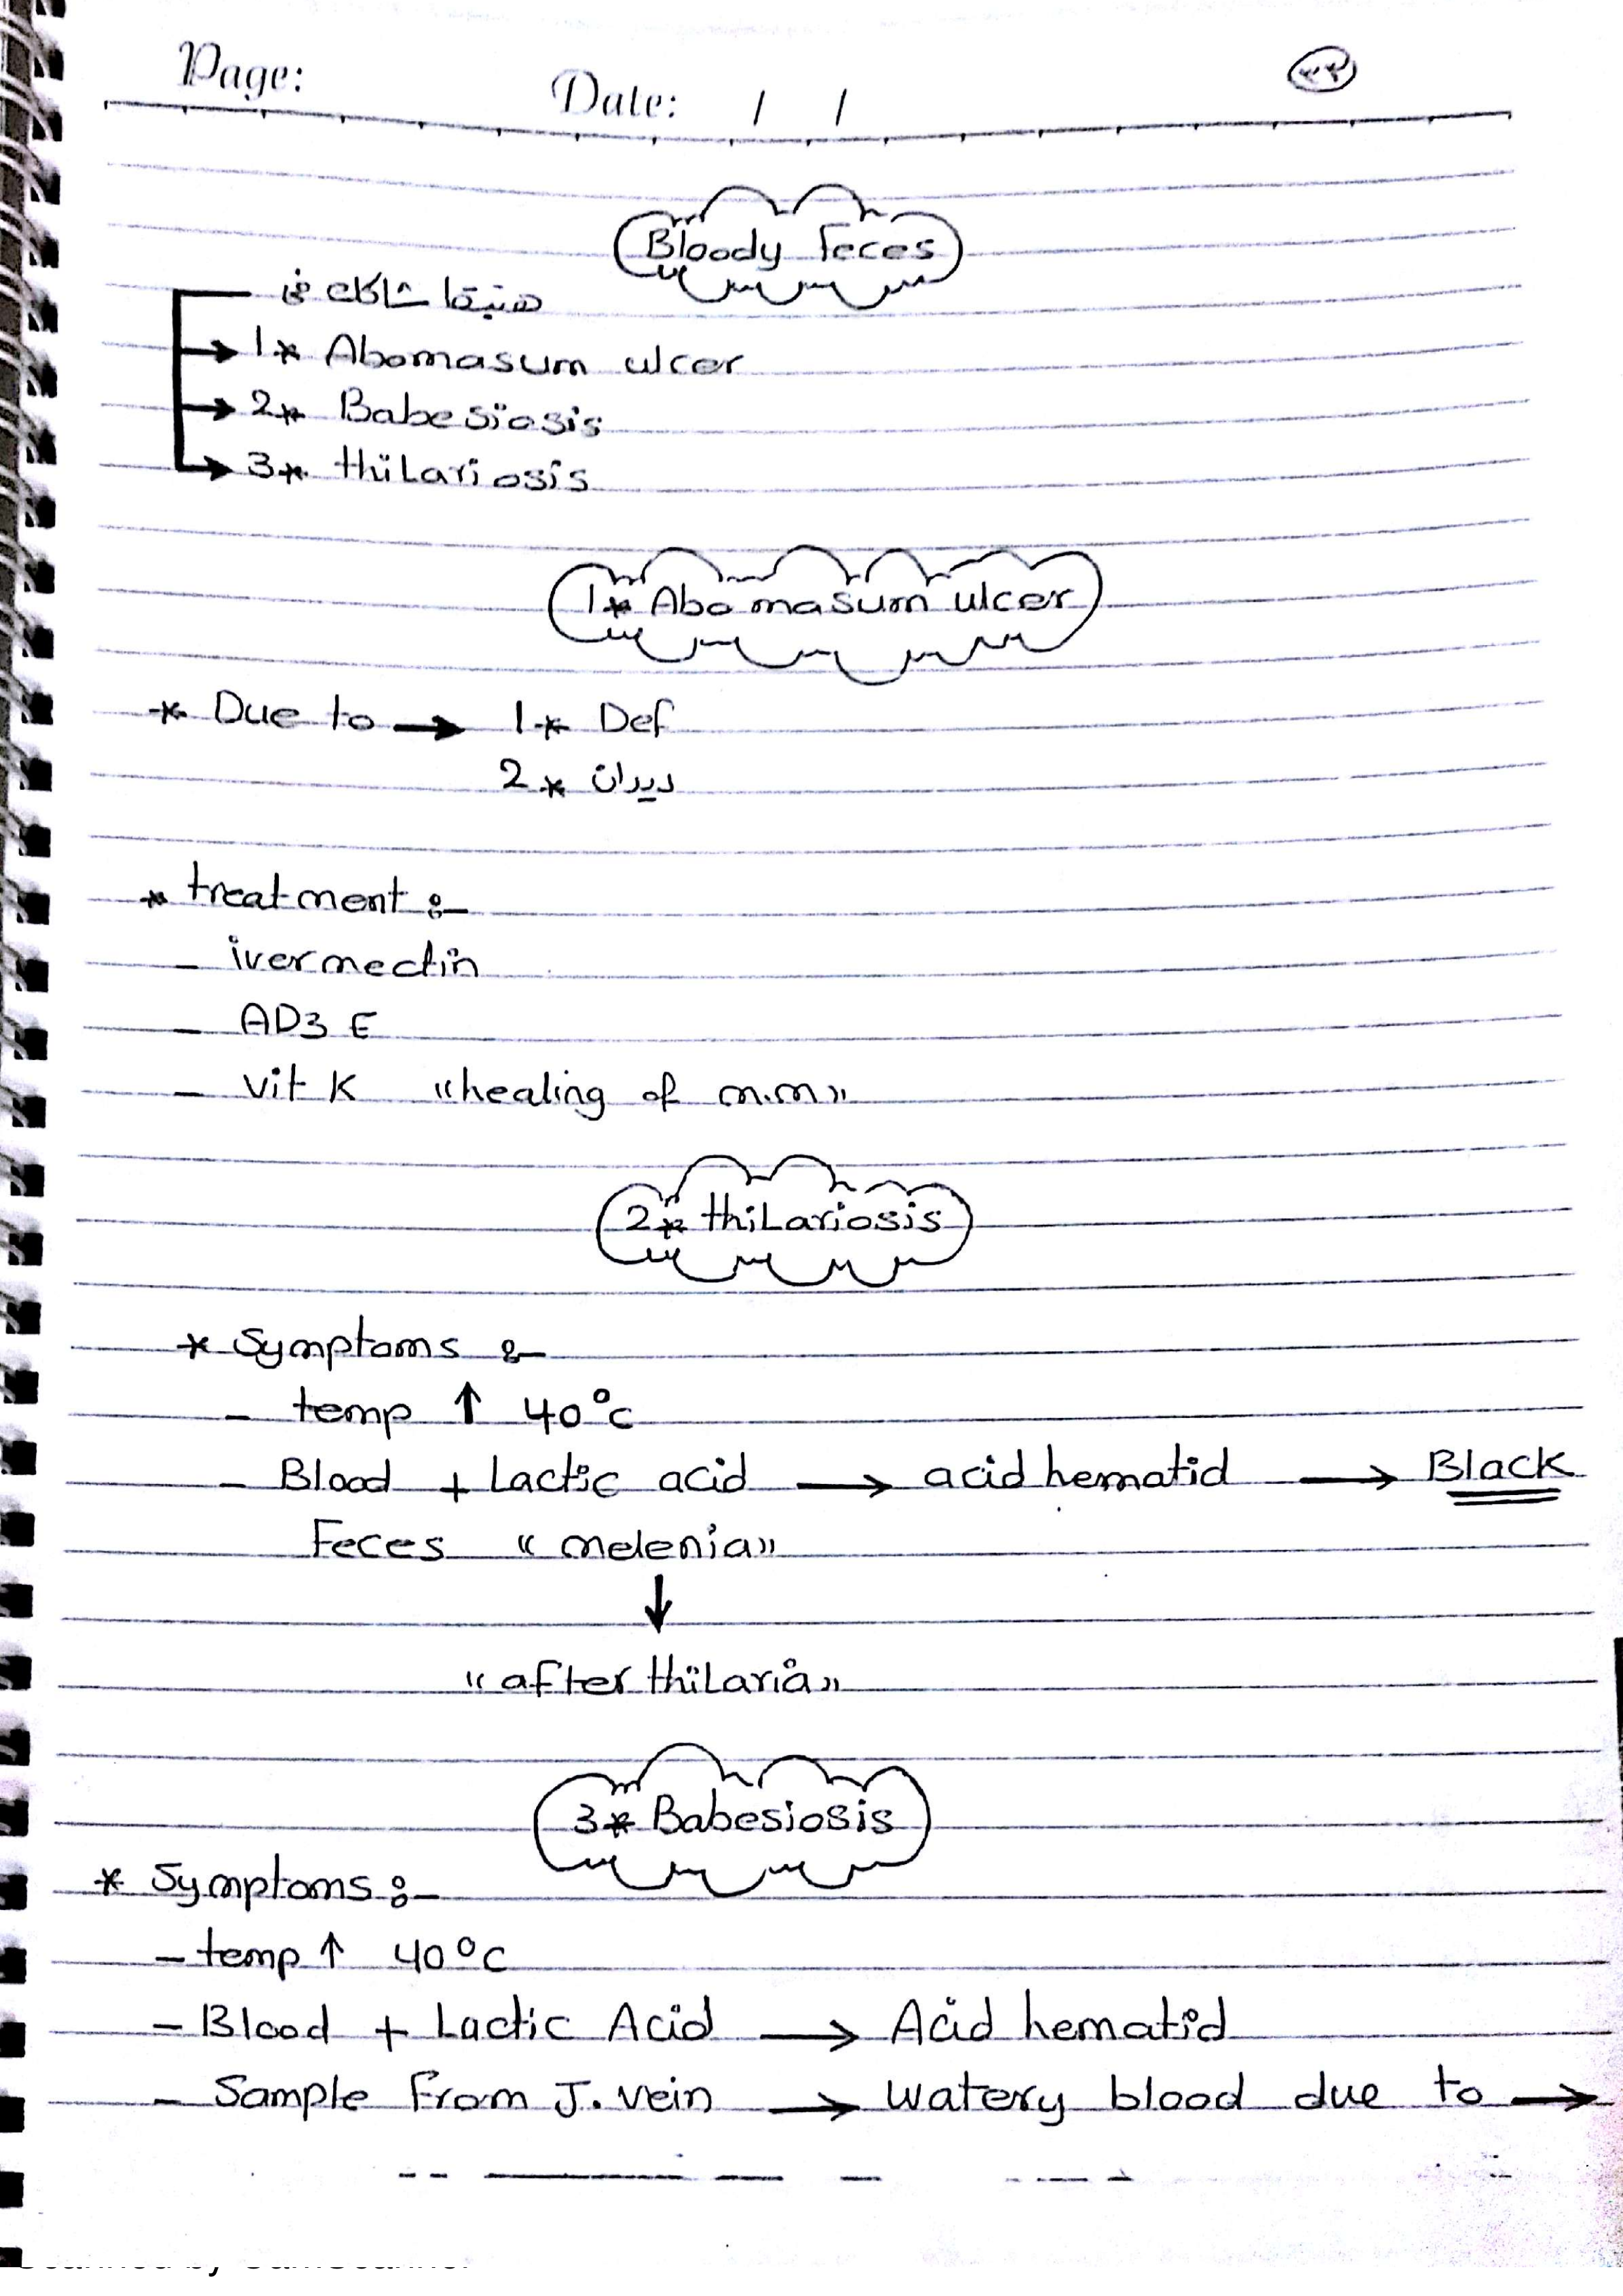 Page: Date: / / ٣٣
Bloody feces
هنبقا شاكك في
1* Abomasum ulcer
2* Babesiosis
3* thilariosis
1* Abomasum ulcer
* Due to → 1* Def
2* ديدان
* treatment :-
- ivermectin
- AD3 E
- vit K "healing of m.m"
2* thilariosis
* Symptoms :-
- temp ↑ 40°c
- Blood + Lactic acid → acid hematid → Black
Feces "melenia"
↓
"after thilaria"
3* Babesiosis
* Symptoms :-
- temp ↑ 40°C
- Blood + Lactic Acid → Acid hematid
- Sample from J. vein → watery blood due to →